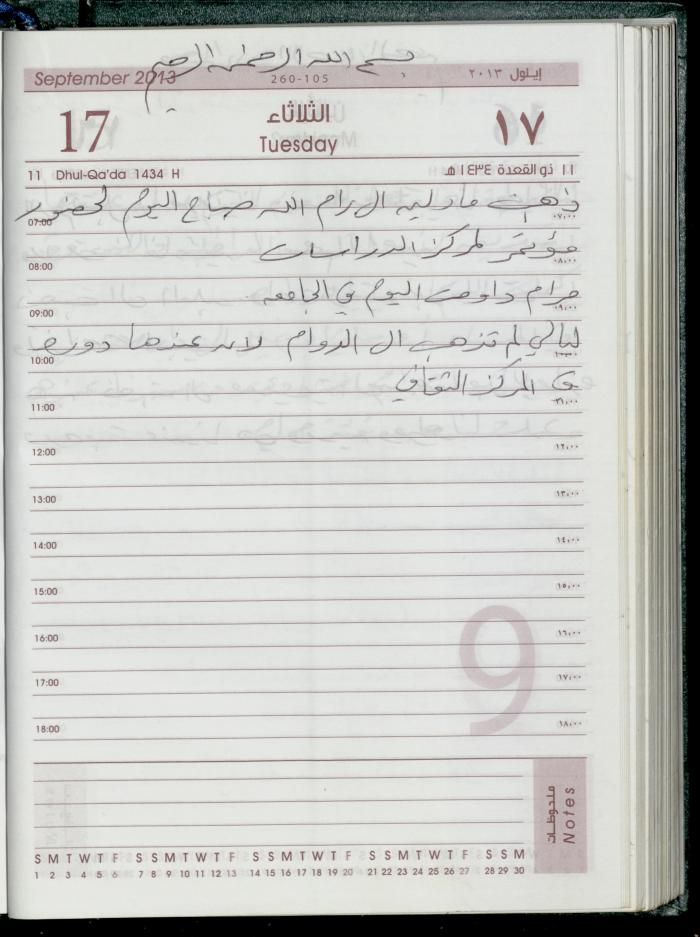 بسم الله الرحمن الرحيم
September 2013 260-105 إيلول ٢٠١٣
17 الثلاثاء ١٧
Tuesday
11 Dhul-Qa'da 1434 H ١١ ذو القعدة ١٤٣٤ هـ
ذهبت مادلين الى رام الله صباح اليوم لحضور
07:00 ٠٧،٠٠
مؤتمر لمركز الدراسات
08:00 ٠٨،٠٠
مرام داومت اليوم في الجامعه
09:00 ٠٩،٠٠
ليالي لم تذهب ال الدوام لانه عندها دوره
10:00
في المركز الثقافي
11:00
12:00 ١٢،٠٠
13:00 ١٣،٠٠
14:00 ١٤،٠٠
15:00 ١٥،٠٠
16:00 ١٦،٠٠
17:00 ١٧،٠٠
18:00 ١٨،٠٠
9
ملحوظات
Notes
S M T W T F S S M T W T F S S M T W T F S S M T W T F S S M
1 2 3 4 5 6 7 8 9 10 11 12 13 14 15 16 17 18 19 20 21 22 23 24 25 26 27 28 29 30